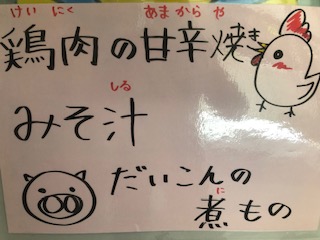 けい にく あまから や
鶏肉の甘辛焼き
しる
みそ汁
だいこんの
に
煮もの